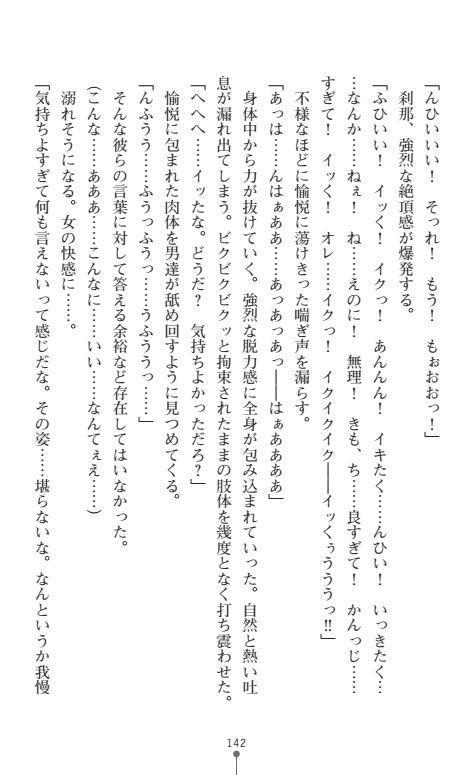 「んひいいい！　そっれ！　もう！　もぉおおっ！」
　刹那、強烈な絶頂感が爆発する。
「ふひいい！　イッく！　イクっ！　あんんん！　イキたく……んひい！　いっきたく…
…なんか……ねぇ！　ね……えのに！　無理！　きも、ち……良すぎて！　かんっじ……
すぎて！　イッく！　オレ……イクっ！　イクイクイク――イッくぅううっ‼」
　不様なほどに愉悦に蕩けきった喘ぎ声を漏らす。
「あっは……んはぁああ……あっあっあっ――はぁああああ」
　身体中から力が抜けていく。強烈な脱力感に全身が包み込まれていった。自然と熱い吐
息が漏れ出てしまう。ビクビクビクッと拘束されたままの肢体を幾度となく打ち震わせた。
「へへへ……イッたな。どうだ？　気持ちよかっただろ？」
　愉悦に包まれた肉体を男達が舐め回すように見つめてくる。
「んふうう……ふうっふうっ……うふううっ……」
　そんな彼らの言葉に対して答える余裕など存在してはいなかった。
（こんな……あああ……こんなに……いい……なんてぇえ……）
　溺れそうになる。女の快感に……。
「気持ちよすぎて何も言えないって感じだな。その姿……堪らないな。なんというか我慢
142